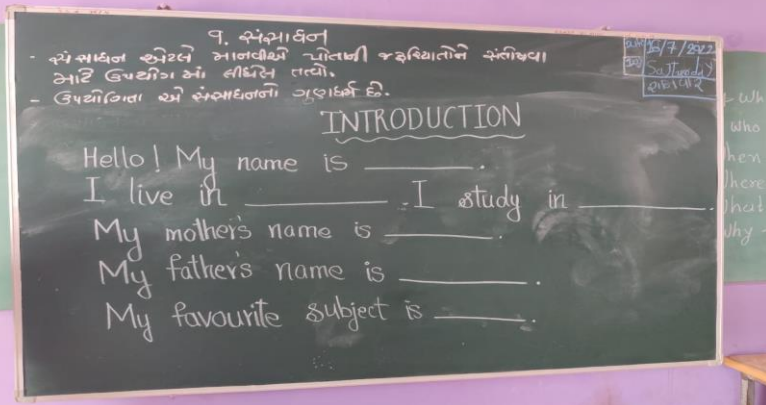 ૧. સંસાધન
- સંસાધન એટલે માનવીએ પોતાની જરૂરિયાતોને સંતોષવા
માટે ઉપયોગ માં લીધેલ તત્વો.
- ઉપયોગિતા એ સંસાધનનો ગુણધર્મ છે.
16/7/2022
શનિવાર
INTRODUCTION
Hello! My name is ________.
I live in ________. I study in ________.
My mother's name is ________.
My father's name is ________.
My favourite subject is ________.
Wh
Who
hen
here
hat
Why -